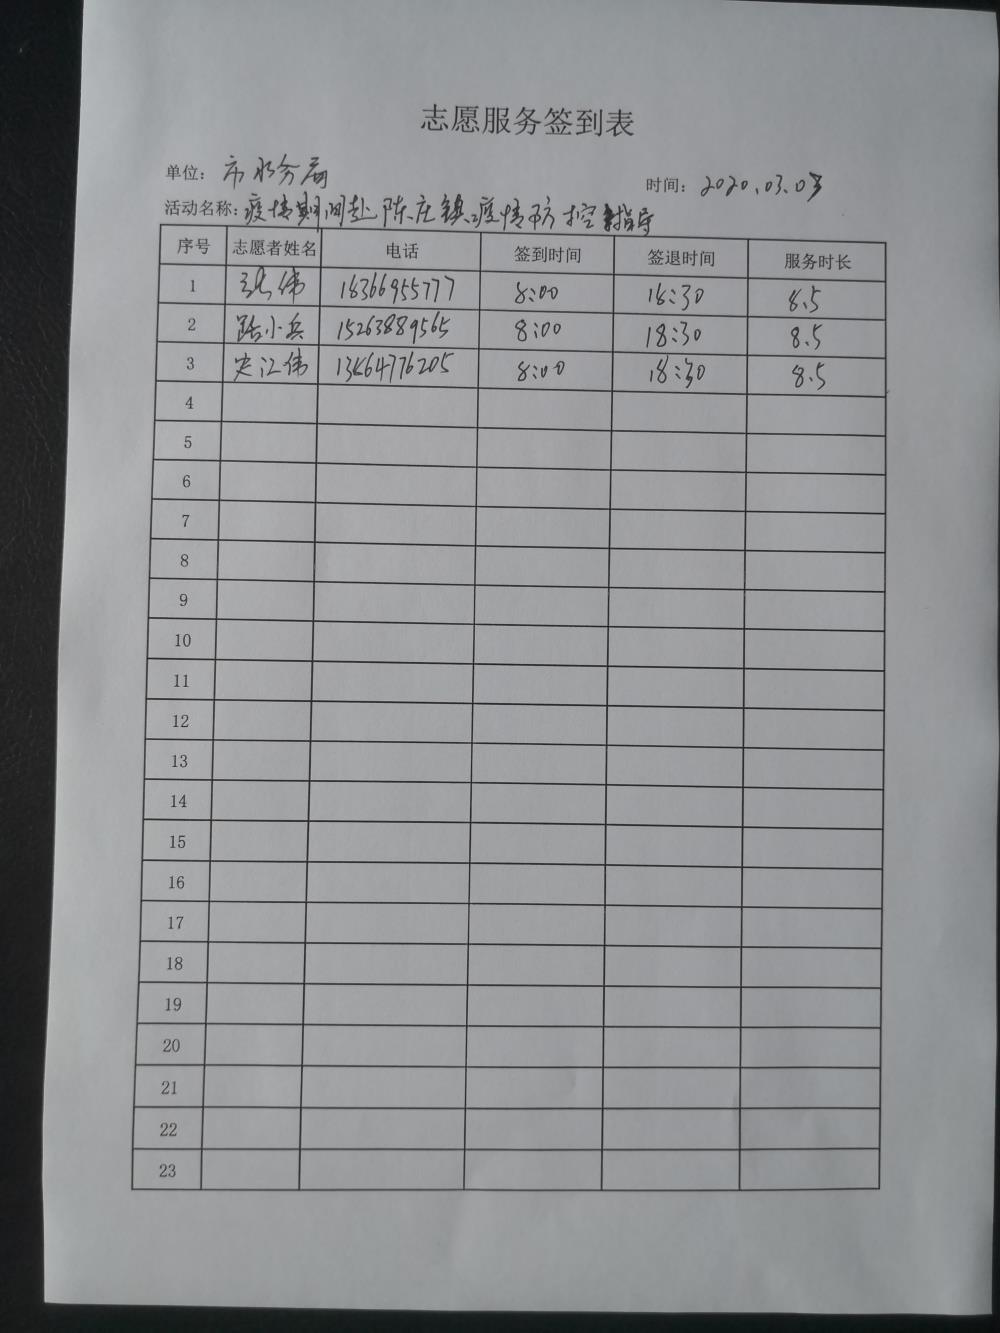 志愿服务签到表
单位：市水务局 时间：2020.03.03
活动名称：疫情期间赴陈庄镇疫情防控指导
序号 志愿者姓名 电话 签到时间 签退时间 服务时长
1 张伟 18366955777 8:00 18:30 8.5
2 路小兵 15263889565 8:00 18:30 8.5
3 宋江伟 13864776205 8:00 18:30 8.5
4
5
6
7
8
9
10
11
12
13
14
15
16
17
18
19
20
21
22
23